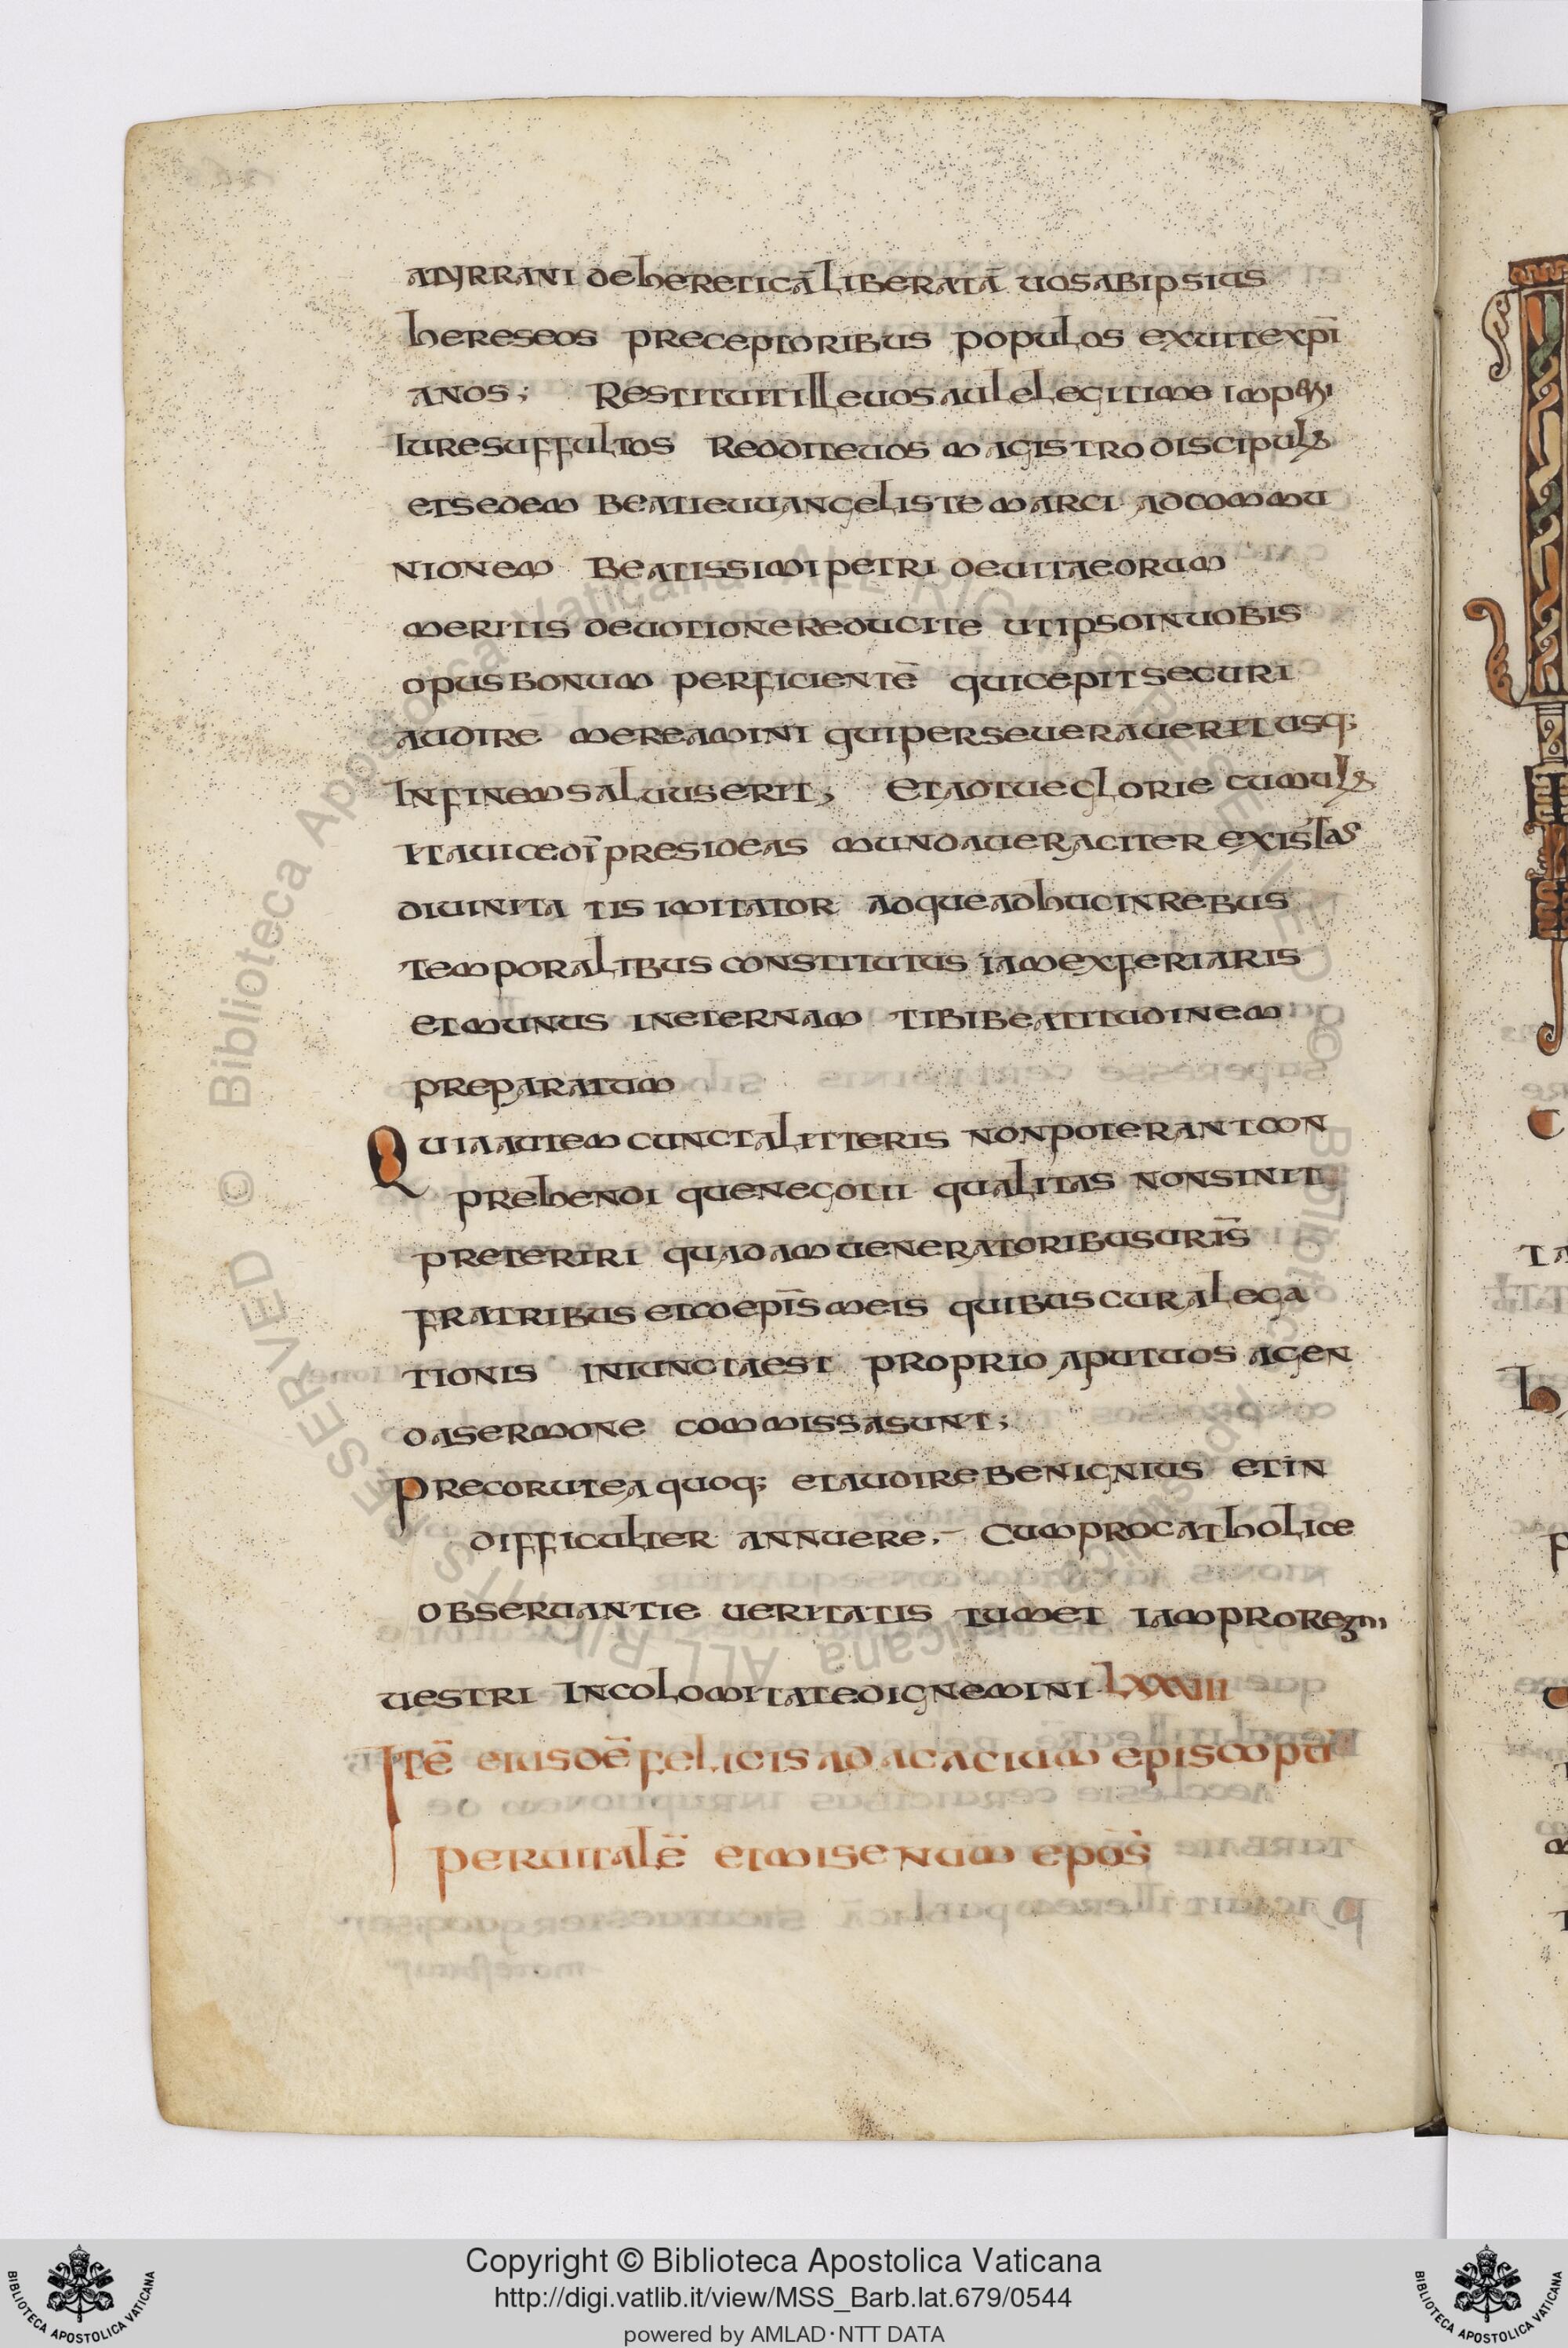 atyrrani de hereticā liberatā uos ab ipsius
hereseos preceptoribus populos exuite xp̄i
anos; Restituit ille uos aule legitime imp
iure suffultos Reddite uos magistro discipulos
et sedem beati euuangeliste marci ad commu
nionem beatissimi petri deuitaeorum
meritis deuotione reducite ut ipso in uobis
opus bonum perficientē qui cepit securi
audire mereamini qui perseuerauerit usq;
in finem saluus erit; Et ad tue glorie cumulos
ita uice dī presideas mundaueraciter existas
diuinitatis imitator adque adhuc in rebus
temporalibus constitutus iam exferiaris
et munus in eternam tibi beatitudinem
preparatum
Quia autem cuncta litteris non poterant con
prehendi que negotii qualitas non sinit
preteriri quadam ueneratoribus urīs
fratribus et coepīs meis quibus cura lega
tionis iniuncta est proprio aput uos agen
da sermone commissa sunt;
Precor ut ea quoq; et audire benignius et in
difficulter annuere. Cum pro catholice
obseruantie ueritatis tum et iam pro regni
uestri incolomitate dignemini LXXXIII
Itē eiusdē felicis ad acacium episcopū
per uitalē et misenum epōs
Copyright © Biblioteca Apostolica Vaticana
http://digi.vatlib.it/view/MSS_Barb.lat.679/0544
powered by AMLAD·NTT DATA